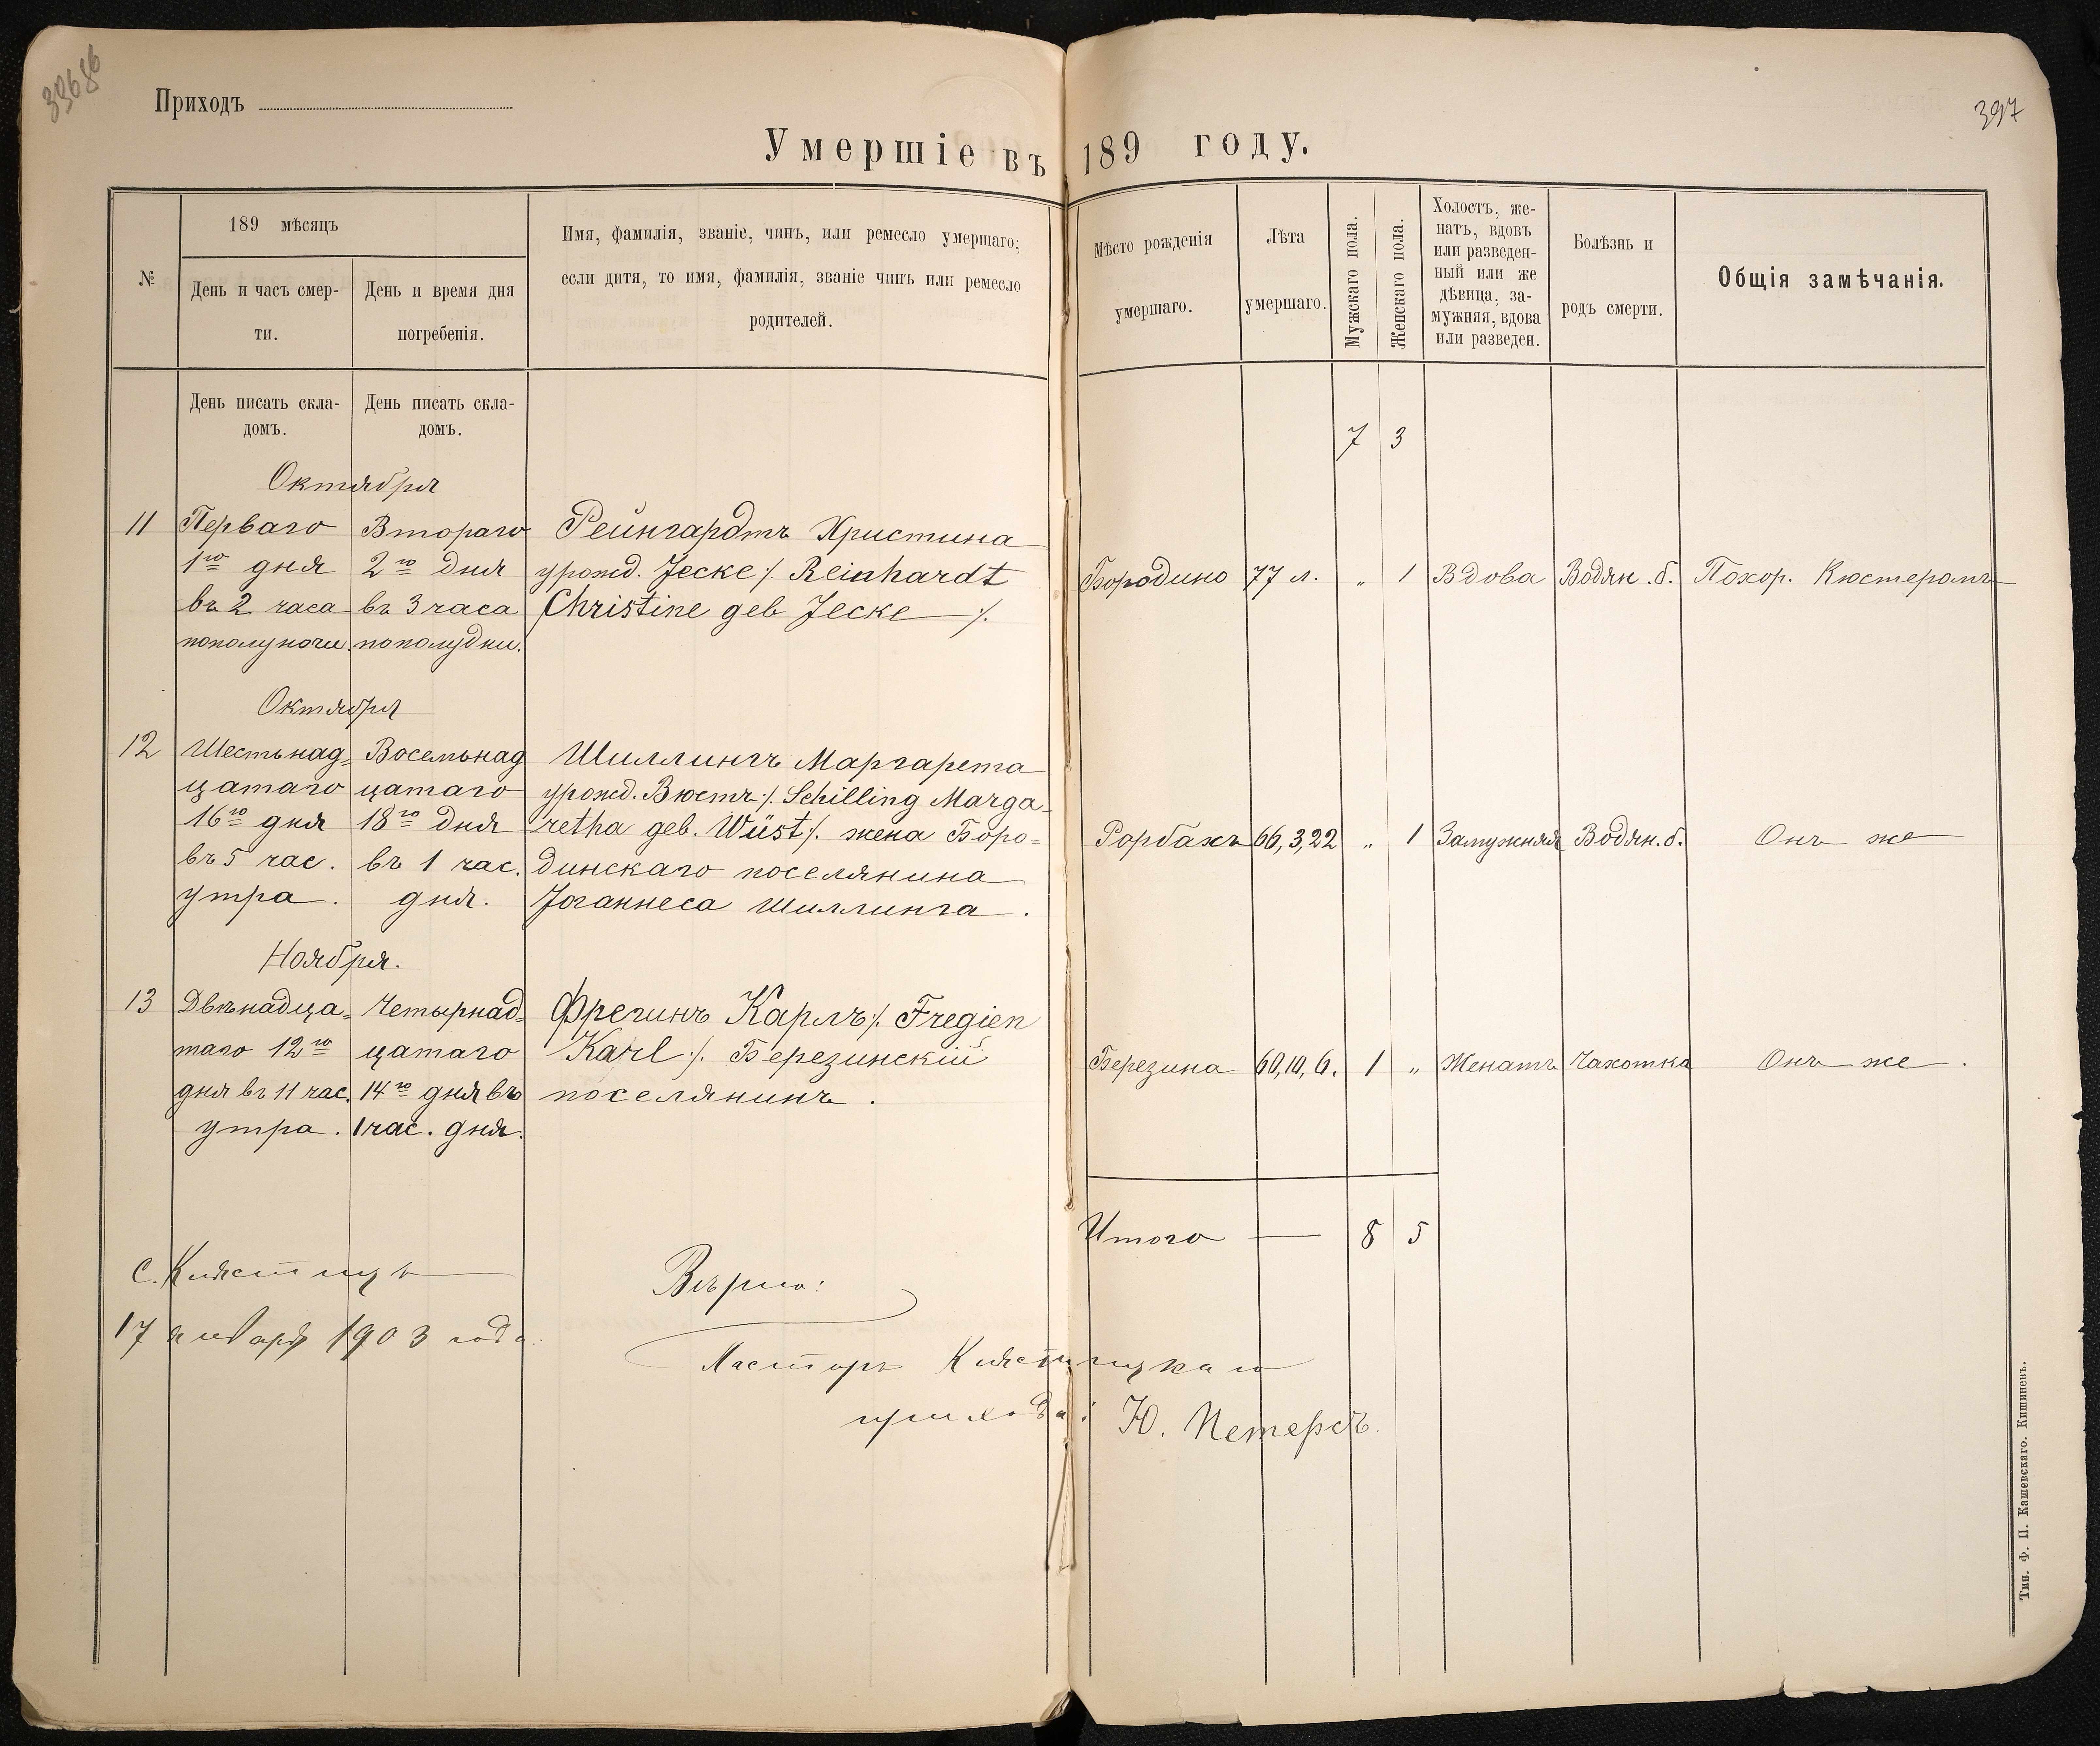 Приходъ
397
Умершіе въ 189 году.
№
189 мѣсяцъ
День и часъ смер-
ти.
День и время дня
погребенія.
Имя, фамилія, званіе, чинъ, или ремесло умершаго;
если дитя, то имя, фамилія, званіе чинъ или ремесло
родителей.
Мѣсто рожденія
умершаго.
Лѣта
умершаго.
Мужскаго пола.
Женскаго пола.
Холостъ, же-
натъ, вдовъ
или разведен-
ный или же
дѣвица, за-
мужняя, вдова
или разведен.
Болѣзнь и
родъ смерти.
Общія замѣчанія.
День писать скла-
домъ.
День писать скла-
домъ.
7 3
Октября
11
Перваго
1го дня
въ 2 часа
пополуночи.
Втораго
2го дня
въ 3 часа
пополудни.
Рейнгардтъ Христина
урожд. Jеске ⁒ Reinhardt
Christine geb Jeske ⁒.
Бородино 77 л. „ 1 Вдова Водян. б. Похор. Кюстеромъ
Октября
12
Шестьнад=
цатаго
16го дня
въ 5 час.
утра.
Восемьнад
цатаго
18го дня
въ 1 час.
дня.
Шиллингъ Маргарета
урожд. Вюстъ ⁒ Schilling Marga-
retha geb. Wüst ⁒. жена Боро=
динскаго поселянина
Іоганнеса Шиллинга.
Рорбахъ 66,3,22 „ 1 Замужняя Водян. б. Онъ же
Ноября.
13
Двѣнадца=
таго 12го
дня въ 11 час.
утра.
Четырнад=
цатаго
14го дня въ
1 час. дня.
Фрегинъ Карлъ ⁒ Fregien
Karl ⁒. Березинскій
поселянинъ.
Березина 60,10,6. 1 „ Женатъ Чахотка Онъ же.
Итого — 8 5
с. Кмястицъ
17 января 1903 года.
Вѣрно:
Пасторъ Клястицкаго
прихода: Ю. Петерсъ.
Тип. Ф. П. Кашевскаго. Кишиневъ.